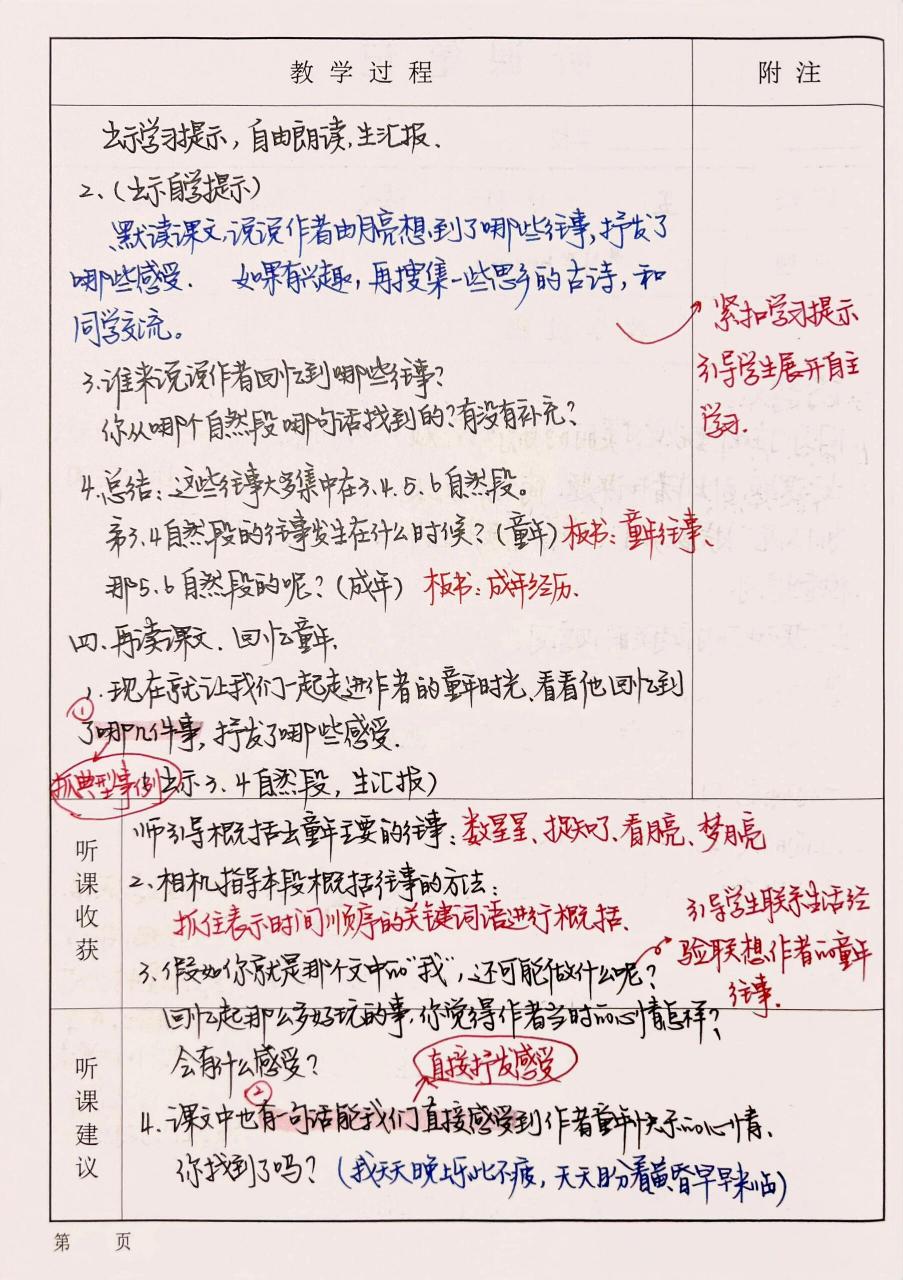 教学过程
附注
出示学习提示，自由朗读，生汇报．
2、（出示自学提示）
默读课文，说说作者由月亮想到了哪些往事，抒发了
哪些感受． 如果有兴趣，再搜集一些思乡的古诗，和
同学交流。
紧扣学习提示
引导学生展开自主
学习．
3.谁来说说作者回忆到哪些往事？
你从哪个自然段哪句话找到的？有没有补充？
4.总结：这些往事大多集中在3.4.5.6自然段。
第3.4自然段的往事发生在什么时候？（童年）板书：童年往事、
那5.6自然段的呢？（成年） 板书：成年经历．
四．再读课文．回忆童年．
1．现在就让我们一起走进作者的童年时光．看看他回忆到
①
了哪几件事，抒发了哪些感受．
抓典型事例
（出示3.4自然段，生汇报）
听课收获
师引导概括出童年主要的往事：数星星、捉知了、看月亮、梦月亮
2、相机指导本段概括往事的方法：
抓住表示时间顺序的关键词语进行概括．
引导学生联系生活经
验联想作者的童年
往事．
3．假如你就是那个文中的“我”，还可能做什么呢？
回忆起那么多好玩的事，你觉得作者当时的心情怎样？
听课建议
会有什么感受？
直接抒发感受
②
4．课文中也有一句话能我们直接感受到作者童年快乐的心情、
你找到了吗？（我天天晚上乐此不疲，天天盼着黄昏早早来临）
第 页